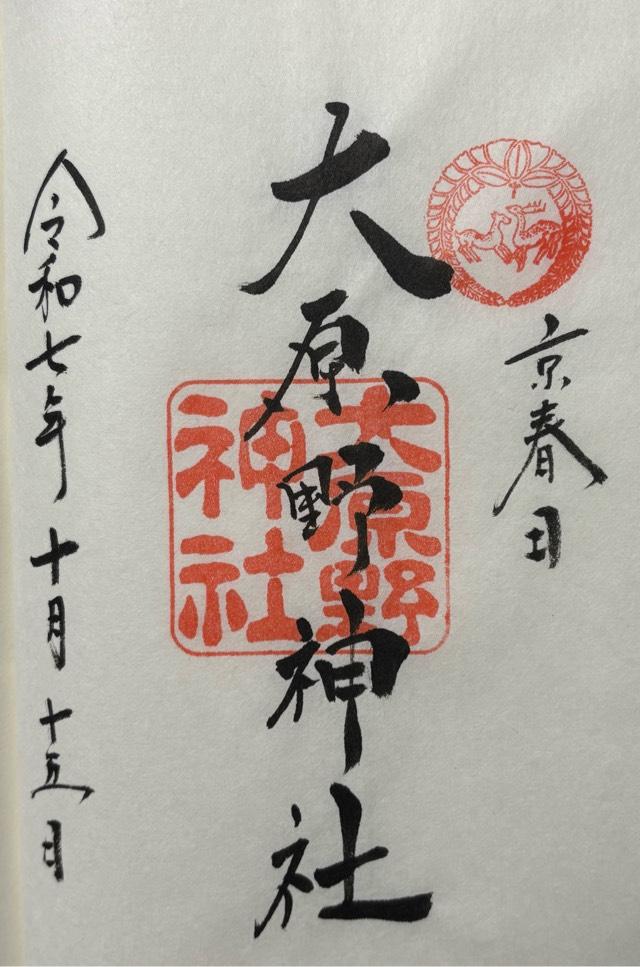 京春日
大原野神社
大原野
神社
令和七年十月十五日